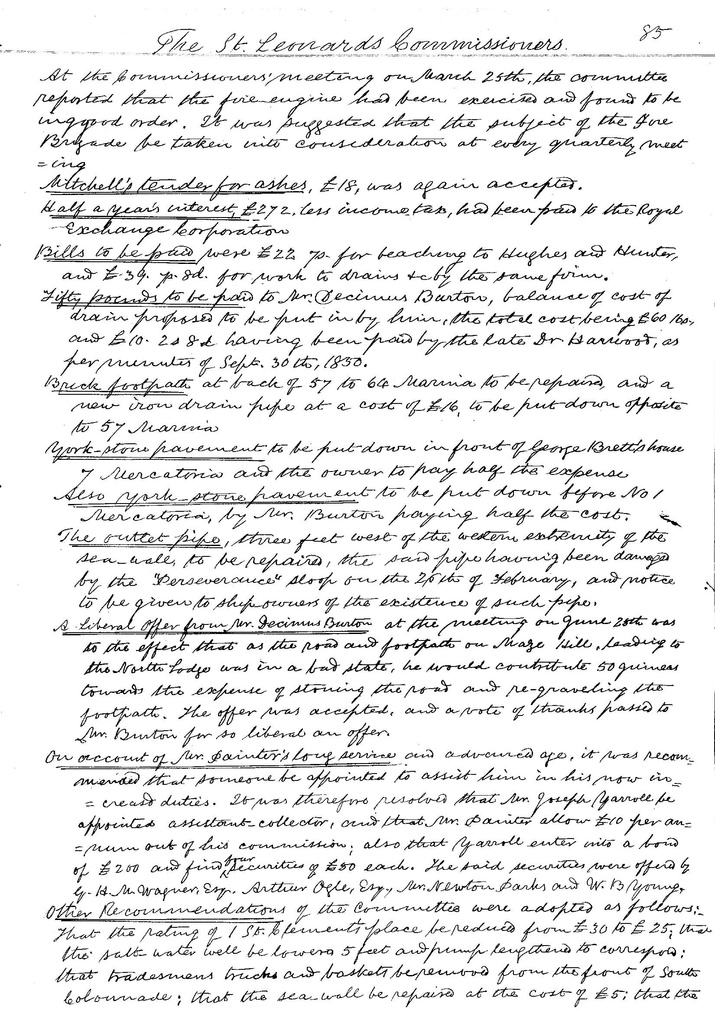 85
The St. Leonards Commissioners.
At the Commissioners' meeting on March 25th, the committee
reported that the fire-engine had been exercised and found to be
in good order. It was suggested that the subject of the Fire
Brigade be taken into consideration at every quarterly meet
=ing
Mitchell's tender for ashes, £18, was again accepted.
Half a year's interest, £272, less income tax, had been paid to the Royal
Exchange Corporation
Bills to be paid were £22 7s. for beaching to Hughes and Hunter,
and £39. 7s. 8d. for work to drains &c by the same firm.
Fifty pounds to be paid to Mr. Decimus Burton, balance of cost of
drain proposed to be put in by him, the total cost being £60
and £10. 2s 8d having been paid by the late Dr Harwood, as
per minutes of Sept. 30th, 1850.
Brick footpath at back of 57 to 64 Marina to be repaired, and a
new iron drain pipe at a cost of £16, to be put down opposite
to 57 Marina
York-stone pavement to be put down in front of George Brett's house
7 Mercatoria and the owner to pay half the expense
Also York-stone pavement to be put down before No 1
Mercatoria, by Mr. Burton paying half the cost.
The outlet pipe, three feet west of the western extremity of the
sea-wall, to be repaired, the said pipe having been damaged
by the "Perseverance" sloop on the 26th of February, and notice
to be given to ship owners of the existence of such pipe.
A liberal offer from Mr. Decimus Burton at the meeting on June 28th was
to the effect that as the road and footpath on Maze Hill, leading to
the North Lodge was in a bad state, he would contribute 50 guineas
towards the expense of stoning the road and re-graveling the
footpath. The offer was accepted, and a vote of thanks passed to
Mr. Burton for so liberal an offer.
On account of Mr. Painter's long service and advanced age, it was recom=
mended that someone be appointed to assist him in his now in=
=creasd duties. It was therefore resolved that Mr. Joseph Yarroll be
appointed assistant-collector, and that Mr. Painter allow £10 per an=
=num out of his commission; also that Yarroll enter into a bond
of £200 and find four securities of £50 each. The said securities were offerd by
G. H. M. Wagner, Esq. Arthur Ogle, Esq, Mr. Newton Parks and W. B Young,
Other Recommendations of the Committee were adopted as follows:-
That the rating of 1 St. Clements place be reduced from £30 to £25; that
the salt-water well be lowerd 5 feet and pump lengthend to correspod;
that tradesmens trucks and baskets be removd from the front of South
Colonnade; that the sea-wall be repaired at the cost of £5; that the